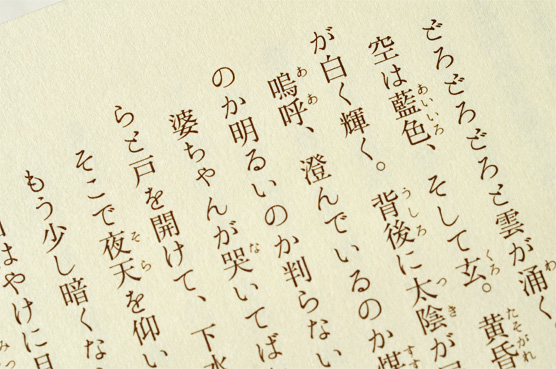 どろどろどろと雲が涌く、
空は藍色、そして玄。黄昏
が白く輝く。背後に太陰が
嗚呼、澄んでいるのか煤
のか明るいのか判らない
婆ちゃんが哭いてば
らと戸を開けて、下水
そこで夜天を仰い
もう少し暗くな
はやけに